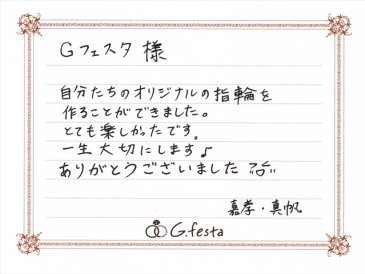 Gフェスタ 様
自分たちのオリジナルの指輪を
作ることができました。
とても楽しかったです。
一生大切にします♪
ありがとうございました
嘉孝・真帆
G.festa